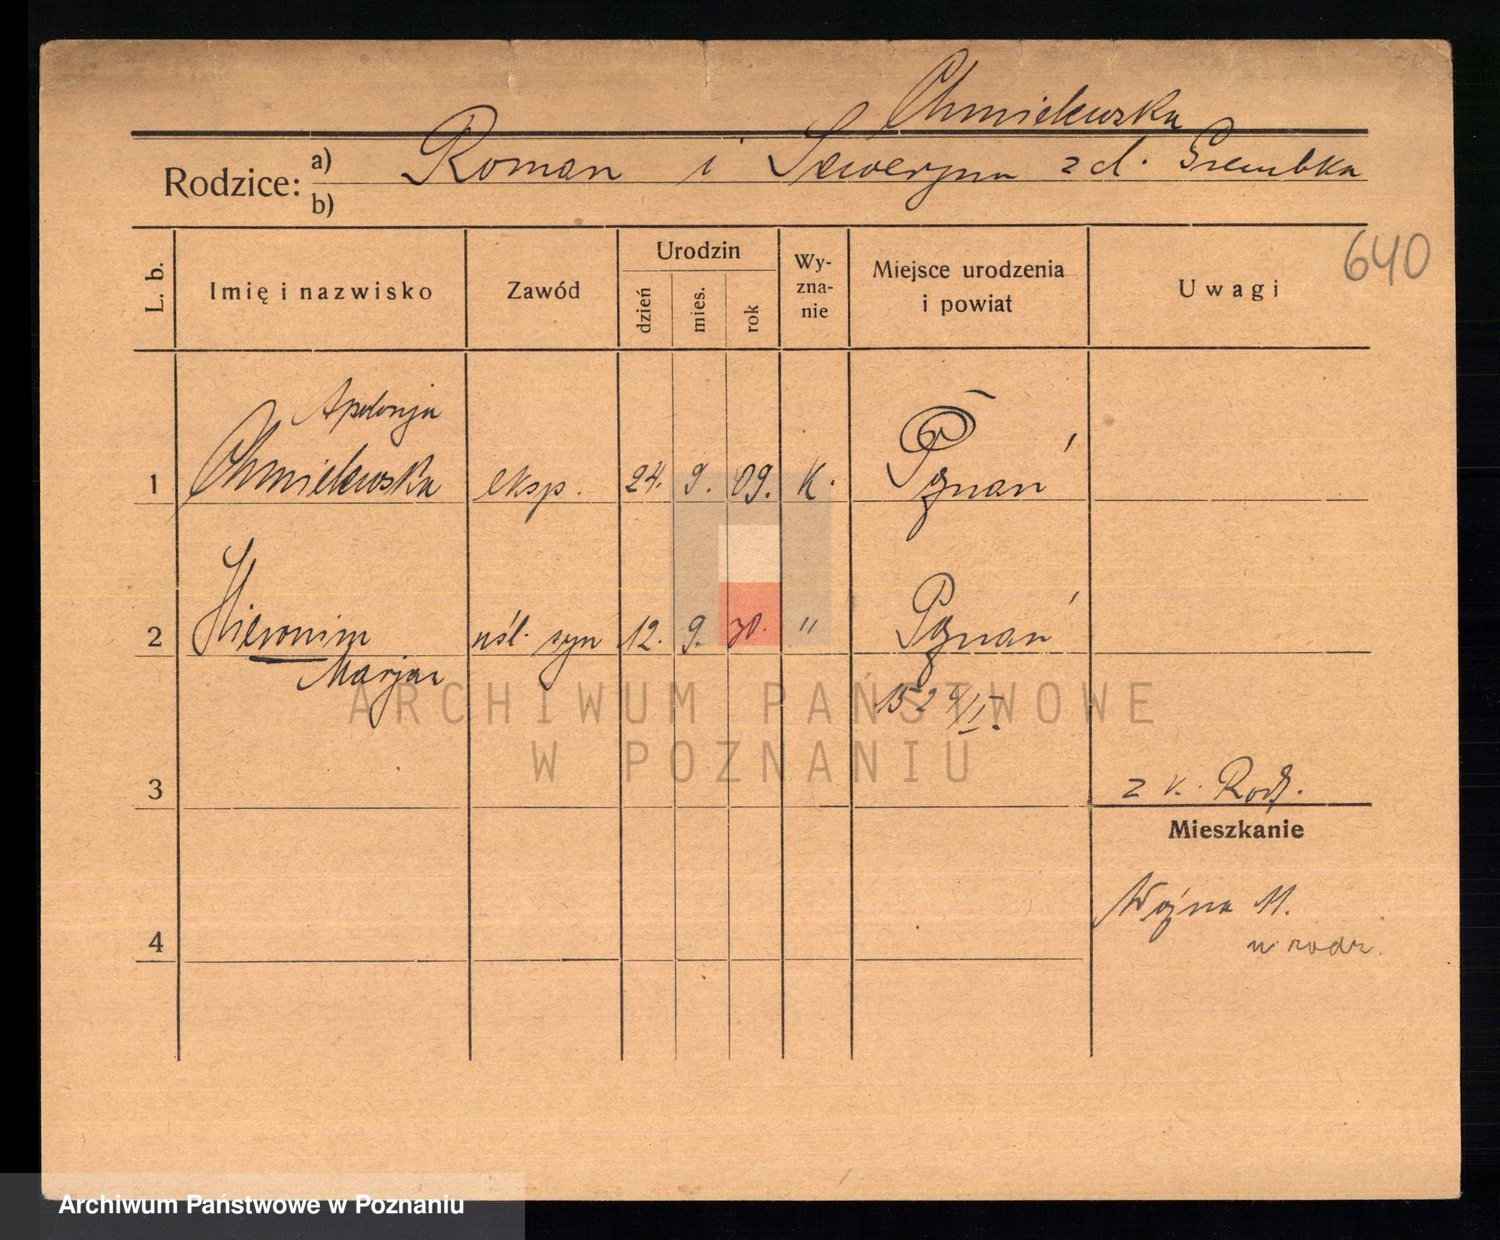 Chmielewska
Rodzice: a) Roman i Seweryna z d. Szembka
b)
640
L. b. Imię i nazwisko Zawód Urodzin dzień mies. rok Wyznanie Miejsce urodzenia i powiat Uwagi
Apolonja
1 Chmielewska eksp. 24. 9. 09. K. Poznań
2 Hieronim nśl. syn 12. 9. 30. " Poznań
Marjan
ARCHIWUM PAŃSTWOWE
W POZNANIU
3 z k. Rodz.
Mieszkanie
Wojna 11.
4 u rodz.
Archiwum Państwowe w Poznaniu